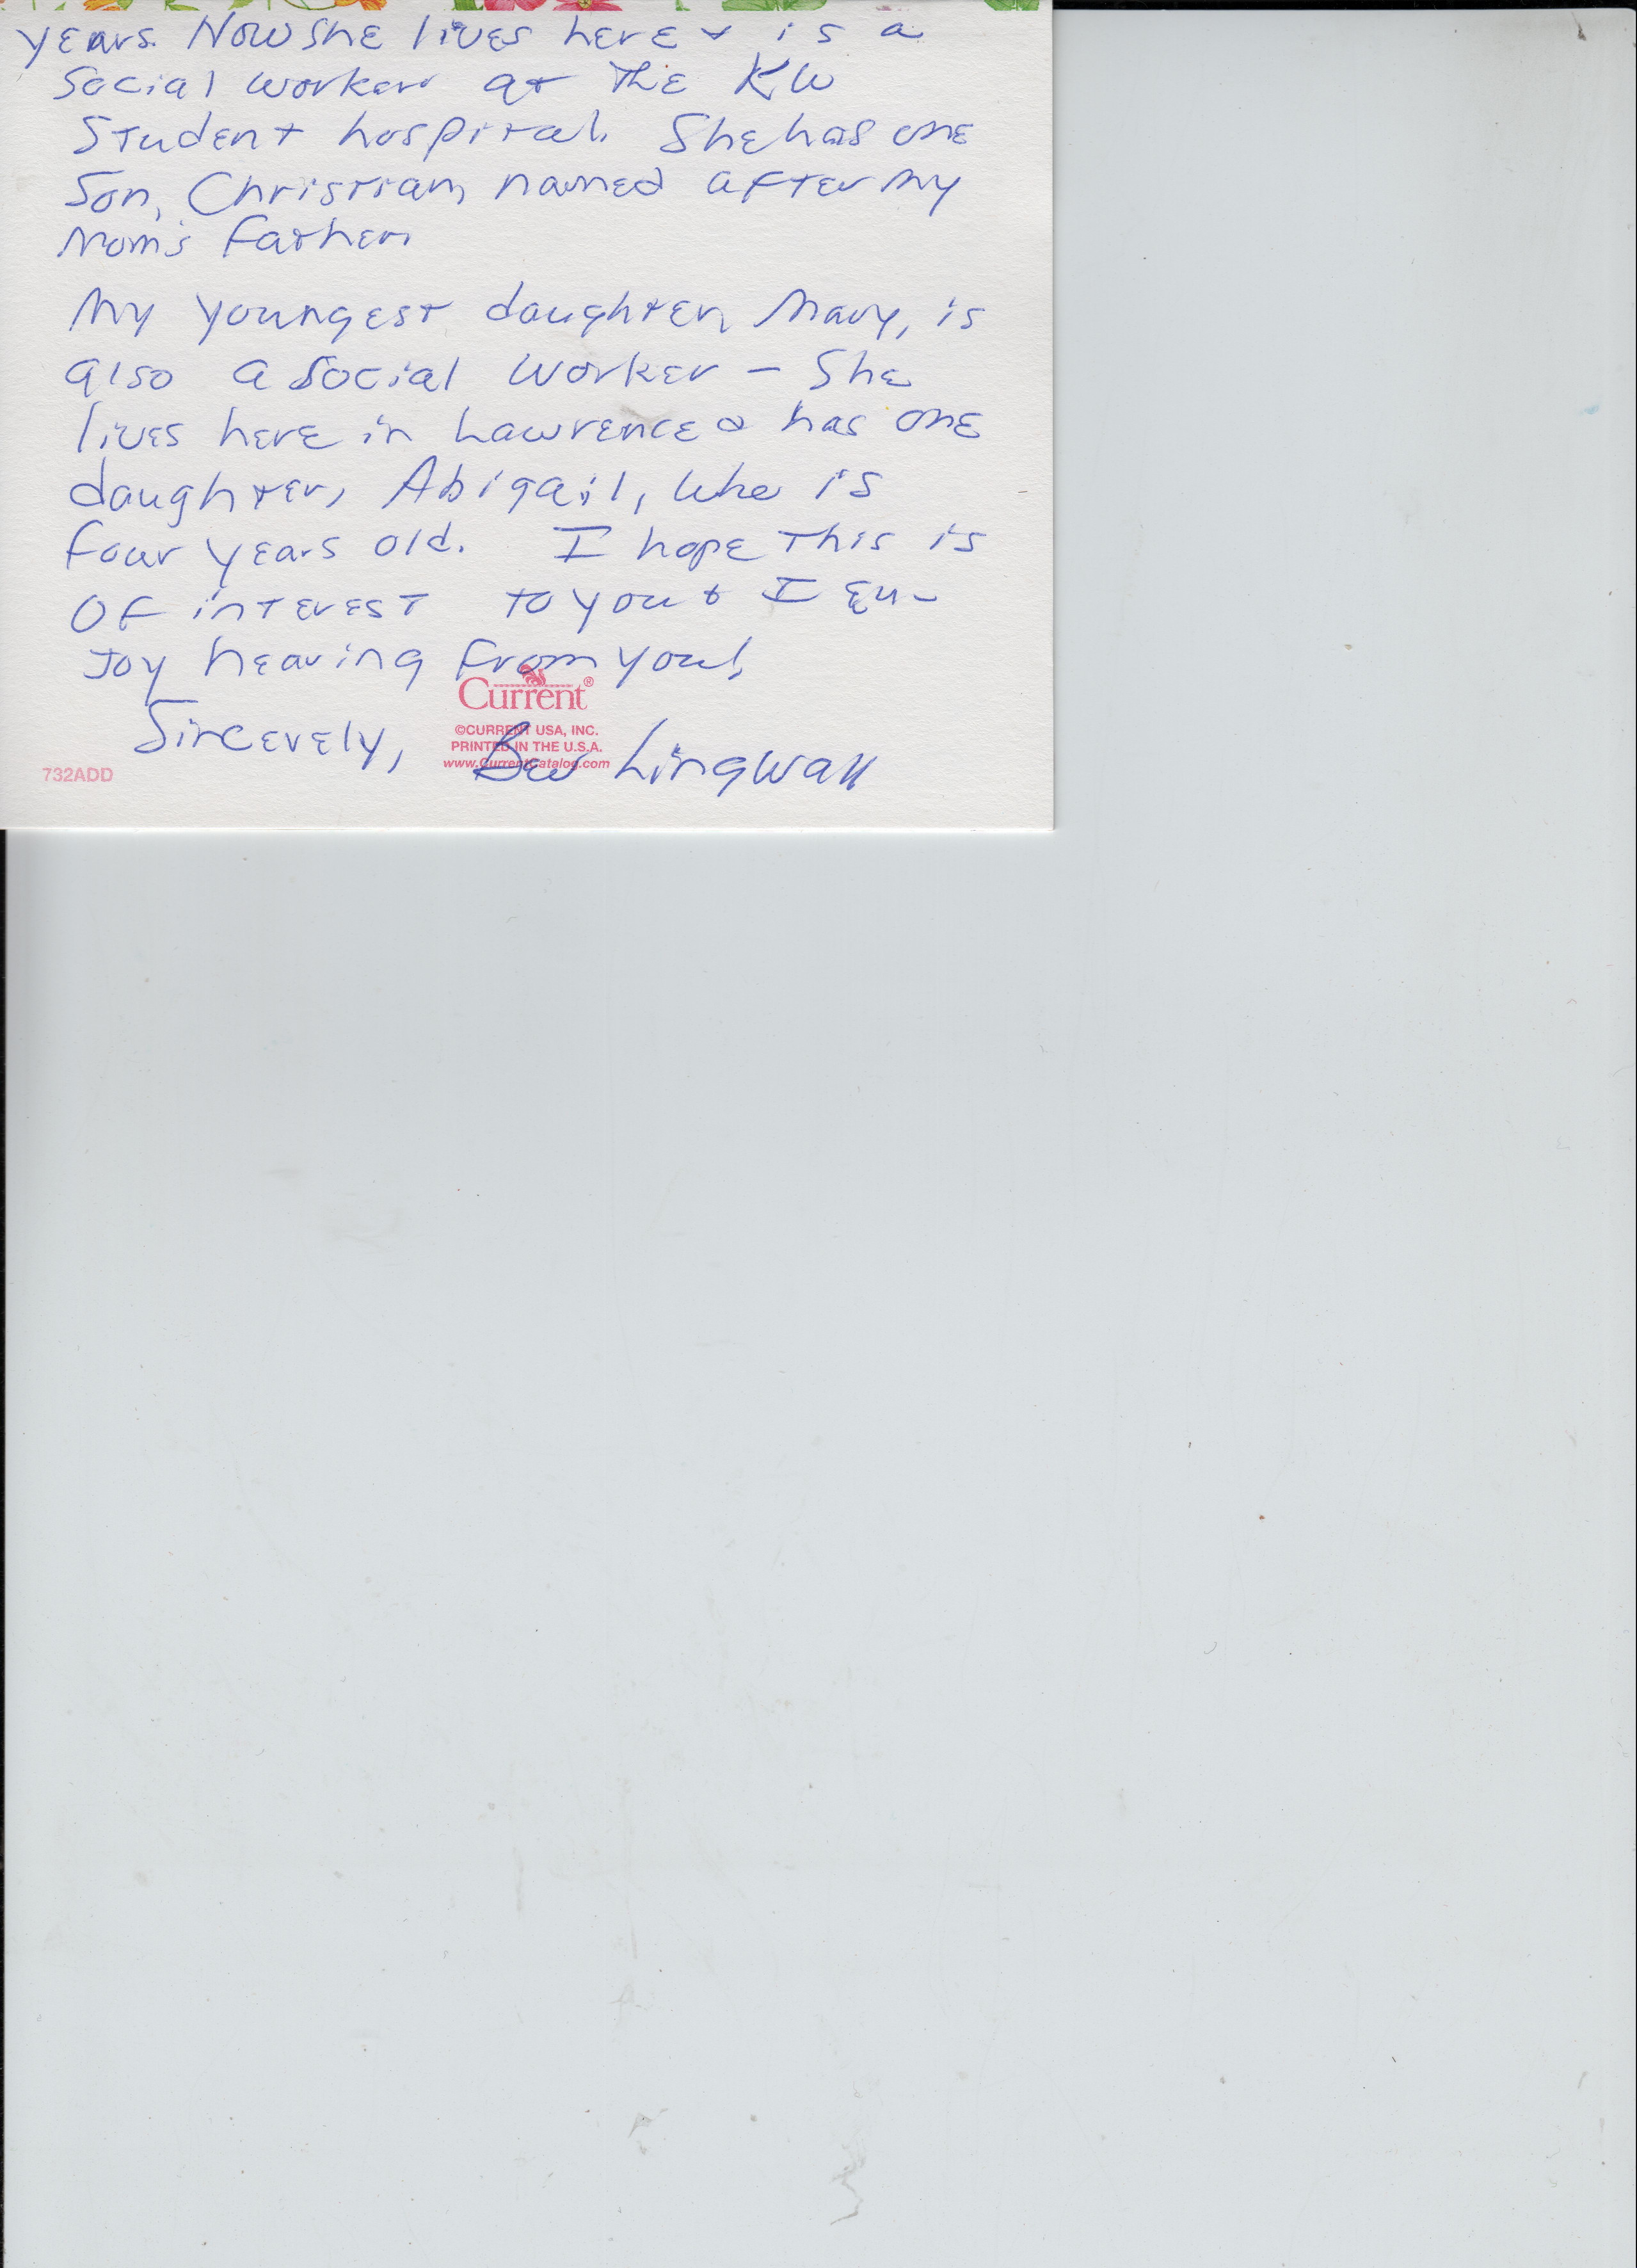 years. Now she lives here & is a
Social worker at the KU
Student hospital. She has one
Son, Christian, named after my
Mom's father.
My youngest daughter, Mary, is
also a Social worker – She
lives here in Lawrence & has one
daughter, Abigail, who is
four years old. I hope this is
of interest to you & I en-
joy hearing from you!
Sincerely, Bev Lingwall
Current®
©CURRENT USA, INC.
PRINTED IN THE U.S.A.
www.Currentcatalog.com
732ADD